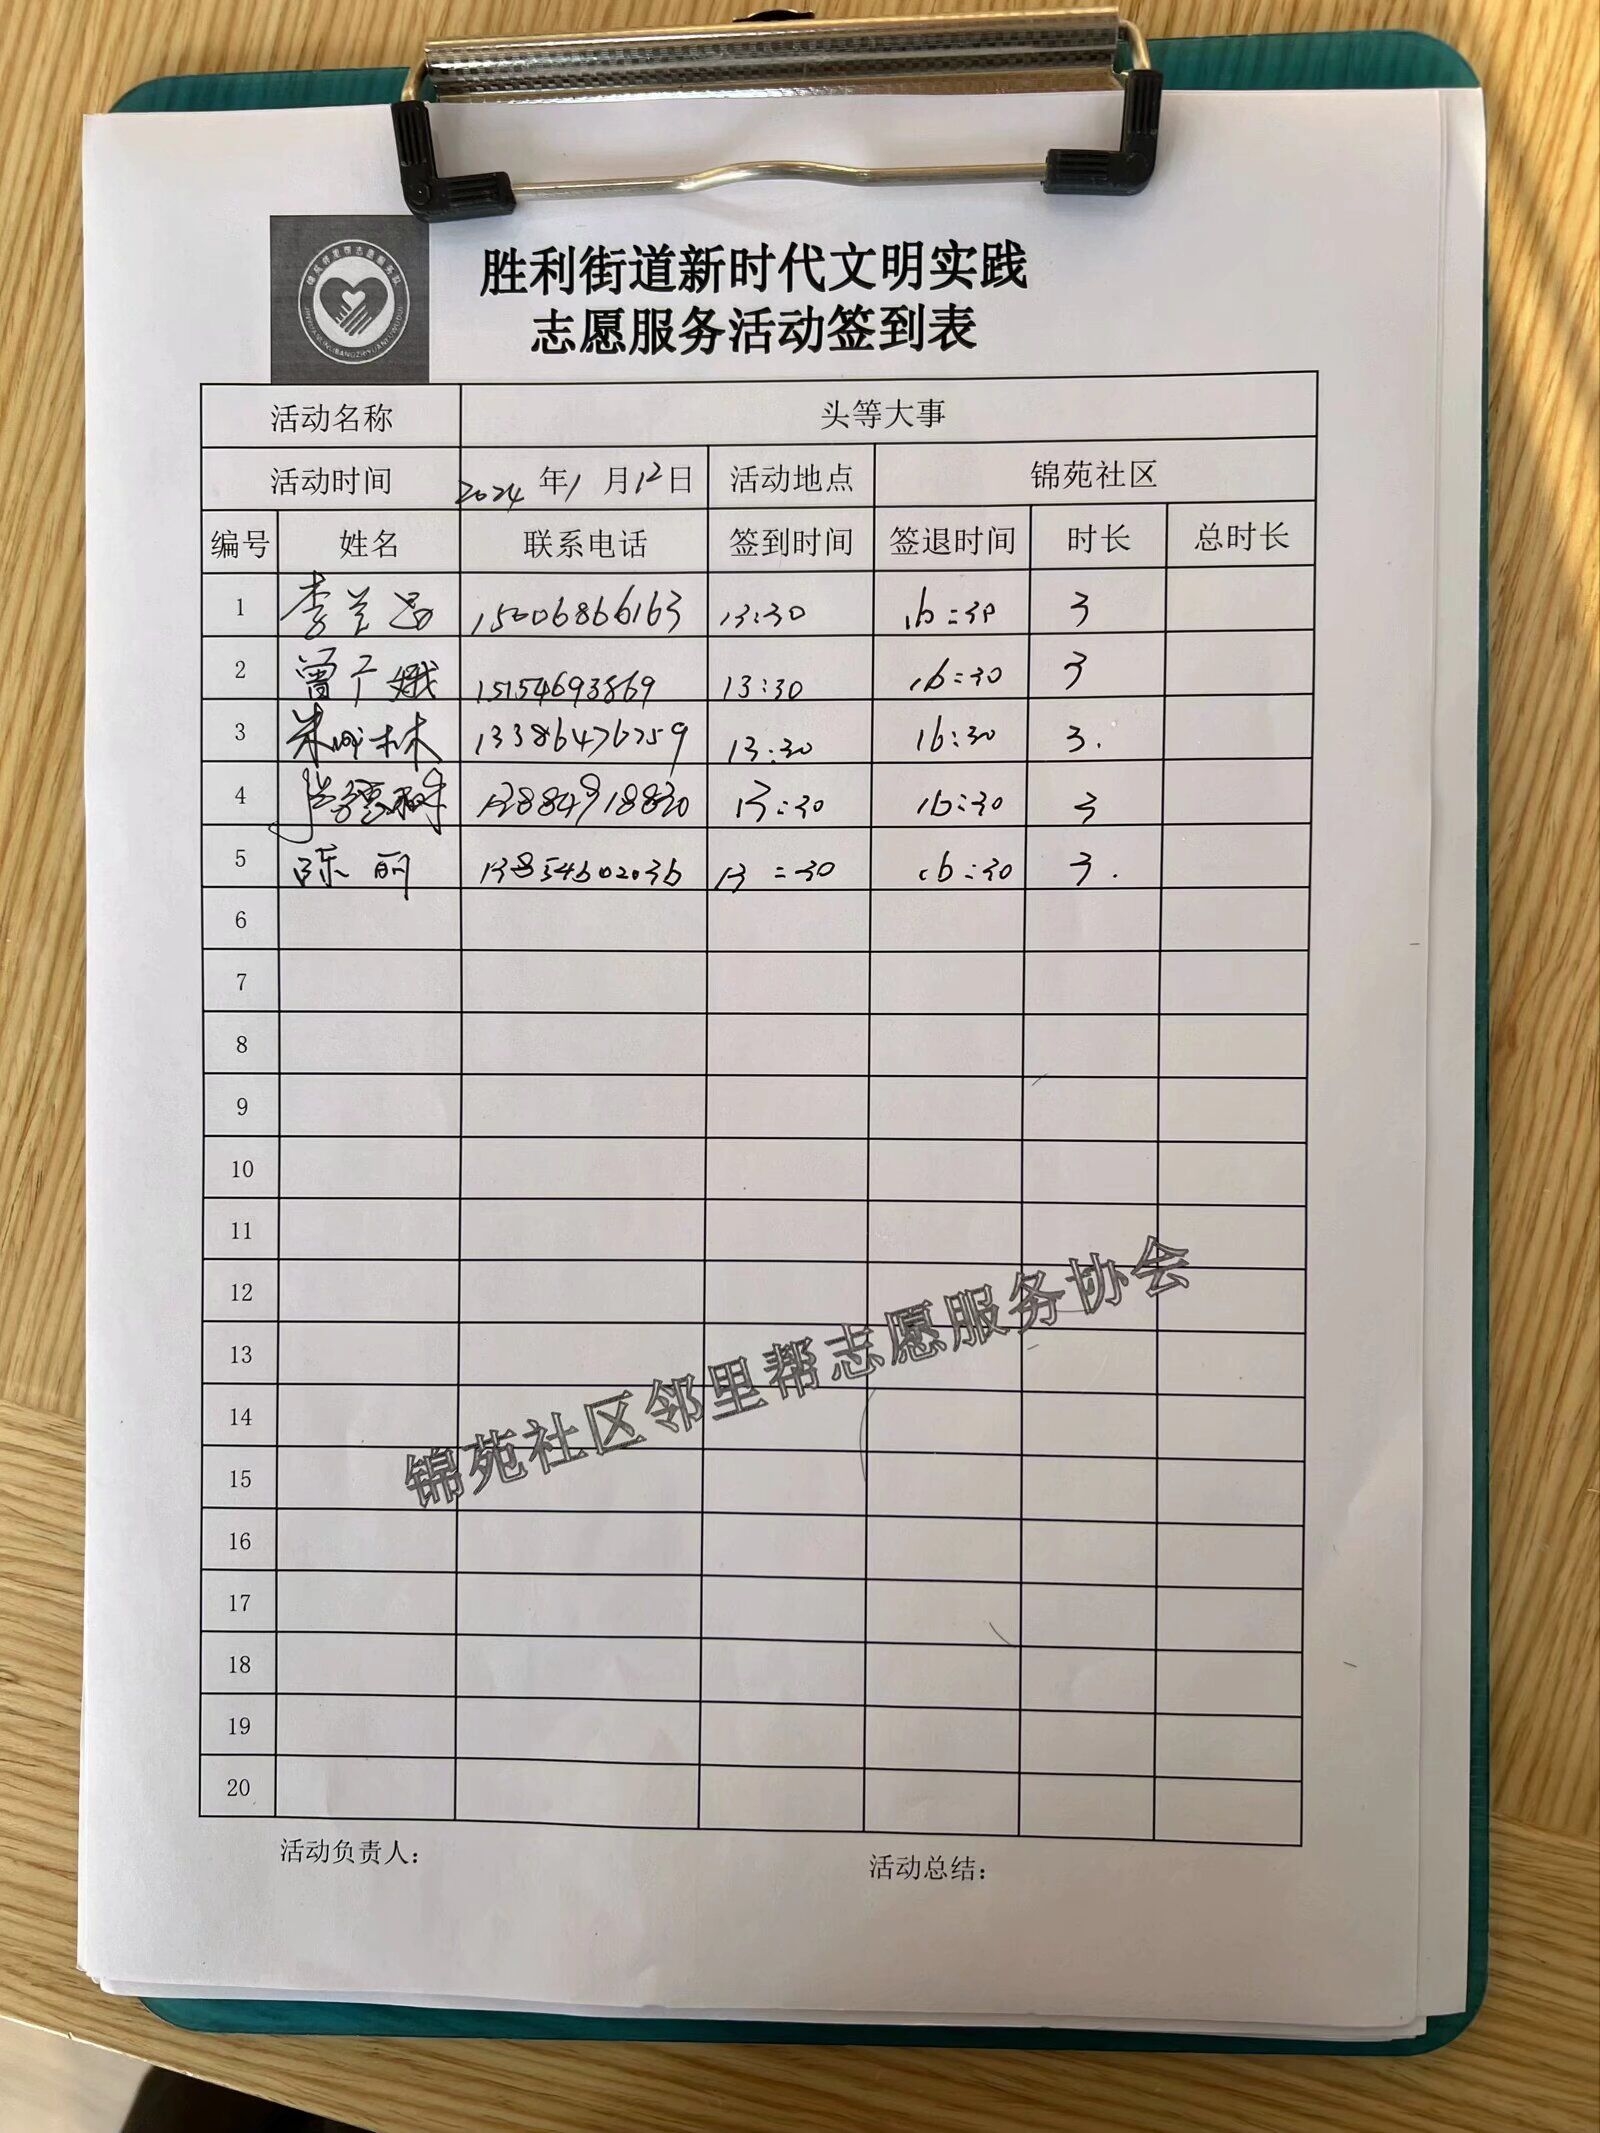 胜利街道新时代文明实践
志愿服务活动签到表
活动名称 头等大事
活动时间 2024年1月12日 活动地点 锦苑社区
编号 姓名 联系电话 签到时间 签退时间 时长 总时长
1 李兰昌 15006866163 13:30 16:30 3
2 曾广娥 15154693869 13:30 16:30 3
3 朱 林 13386476259 13:30 16:30 3.
4 13884918830 13:30 16:30 3
5 陈丽 13854602036 13:30 16:30 3.
6
7
8
9
10
11
12
13
14
15
16
17
18
19
20
锦苑社区邻里帮志愿服务协会
活动负责人：
活动总结：